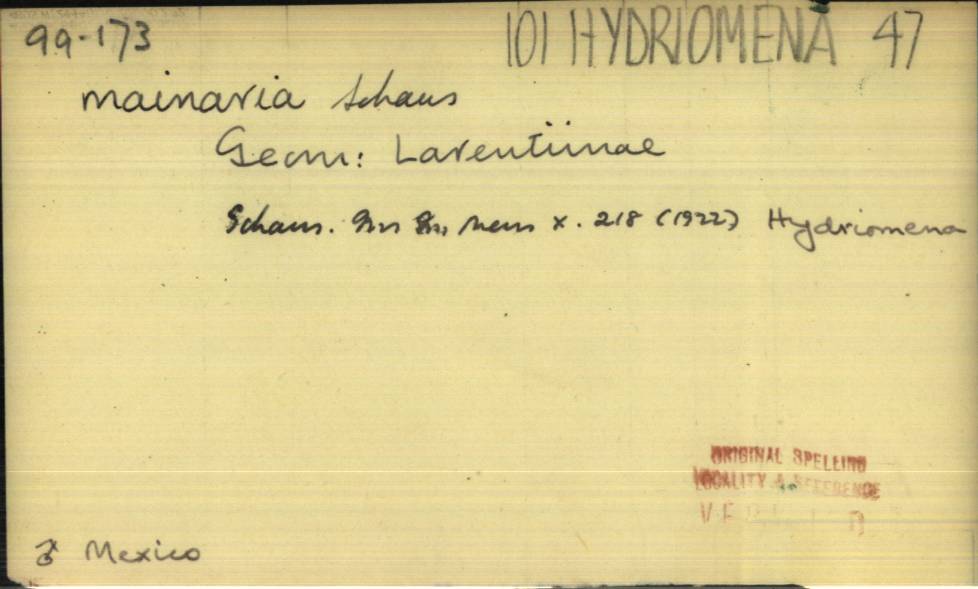 99-173
101 HYDRIOMENA 47
mainaria Schaus
Geom: Larentiinae
Schaus. Ins Ins. Mens x. 218 (1922) Hydriomena
ORIGINAL SPELLING
LOCALITY & REFERENCE
♂ Mexico